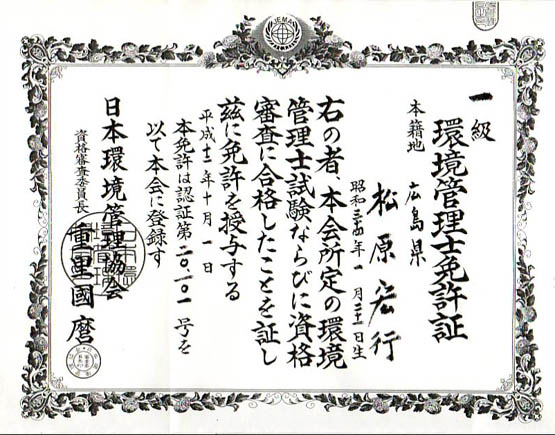 一級
環境管理士免許証
本籍地 広島県
松原宏行
昭和三十四年一月二十一日生
右の者、本会所定の環境
管理士試験ならびに資格
審査に合格したことを証し
茲に免許を授与する
平成十二年十月一日
本免許は認証第二〇.一〇一号を
以て本会に登録す
日本環境管理協会
資格審査委員長
國磨
JEMA